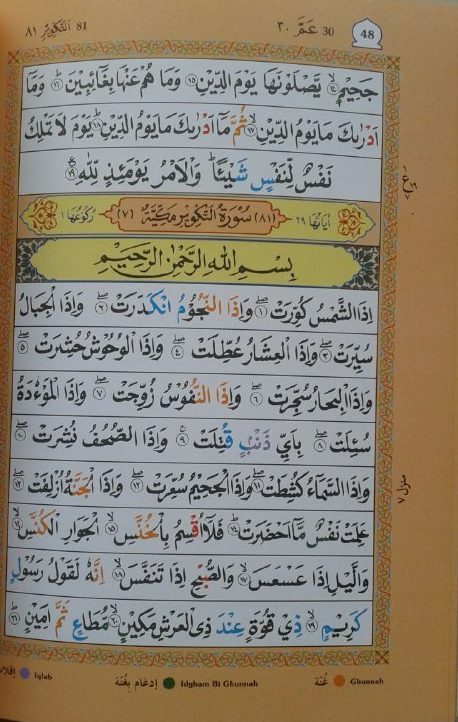 ٨١ اَلتَّكْوِيْر 81 عَمَّ ٣٠ 30 48
جَحِيْمٍ ۙ۝١٤ يَّصْلَوْنَهَا يَوْمَ الدِّيْنِ ۝١٥ وَمَا هُمْ عَنْهَا بِغَآئِبِيْنَ ۝١٦ؕ وَمَاۤ
اَدْرٰىكَ مَا يَوْمُ الدِّيْنِ ۝١٧ۙ ثُمَّ مَاۤ اَدْرٰىكَ مَا يَوْمُ الدِّيْنِ ۝١٨ؕ يَوْمَ لَا تَمْلِكُ
نَفْسٌ لِّنَفْسٍ شَيْئًا ؕ وَالْاَمْرُ يَوْمَئِذٍ لِّلّٰهِ ۝١٩
اٰيَاتُهَا ٢٩ (٨١) سُوْرَةُ التَّكْوِيْرِ مَكِّيَّةٌ (٧) رُكُوْعُهَا ١
بِسْمِ اللّٰهِ الرَّحْمٰنِ الرَّحِيْمِ
اِذَا الشَّمْسُ كُوِّرَتْ ۝١ وَاِذَا النُّجُوْمُ انْكَدَرَتْ ۝٢ وَاِذَا الْجِبَالُ
سُيِّرَتْ ۝٣ وَاِذَا الْعِشَارُ عُطِّلَتْ ۝٤ وَاِذَا الْوُحُوْشُ حُشِرَتْ ۝٥
وَاِذَا الْبِحَارُ سُجِّرَتْ ۝٦ وَاِذَا النُّفُوْسُ زُوِّجَتْ ۝٧ وَاِذَا الْمَوْءٗدَةُ
سُئِلَتْ ۝٨ بِاَيِّ ذَنْۢبٍ قُتِلَتْ ۝٩ وَاِذَا الصُّحُفُ نُشِرَتْ ۝١٠
وَاِذَا السَّمَآءُ كُشِطَتْ ۝١١ وَاِذَا الْجَحِيْمُ سُعِّرَتْ ۝١٢ وَاِذَا الْجَنَّةُ اُزْلِفَتْ ۝١٣
عَلِمَتْ نَفْسٌ مَّاۤ اَحْضَرَتْ ۝١٤ فَلَاۤ اُقْسِمُ بِالْخُنَّسِ ۝١٥ الْجَوَارِ الْكُنَّسِ ۝١٦
وَالَّيْلِ اِذَا عَسْعَسَ ۝١٧ وَالصُّبْحِ اِذَا تَنَفَّسَ ۝١٨ اِنَّهٗ لَقَوْلُ رَسُوْلٍ
كَرِيْمٍ ۝١٩ ذِيْ قُوَّةٍ عِنْدَ ذِى الْعَرْشِ مَكِيْنٍ ۝٢٠ مُّطَاعٍ ثَمَّ اَمِيْنٍ ۝٢١
منزل ٧
غُنَّة Ghunnah إدغام بِغُنَّة Idgham Bi Ghunnah Iqlab